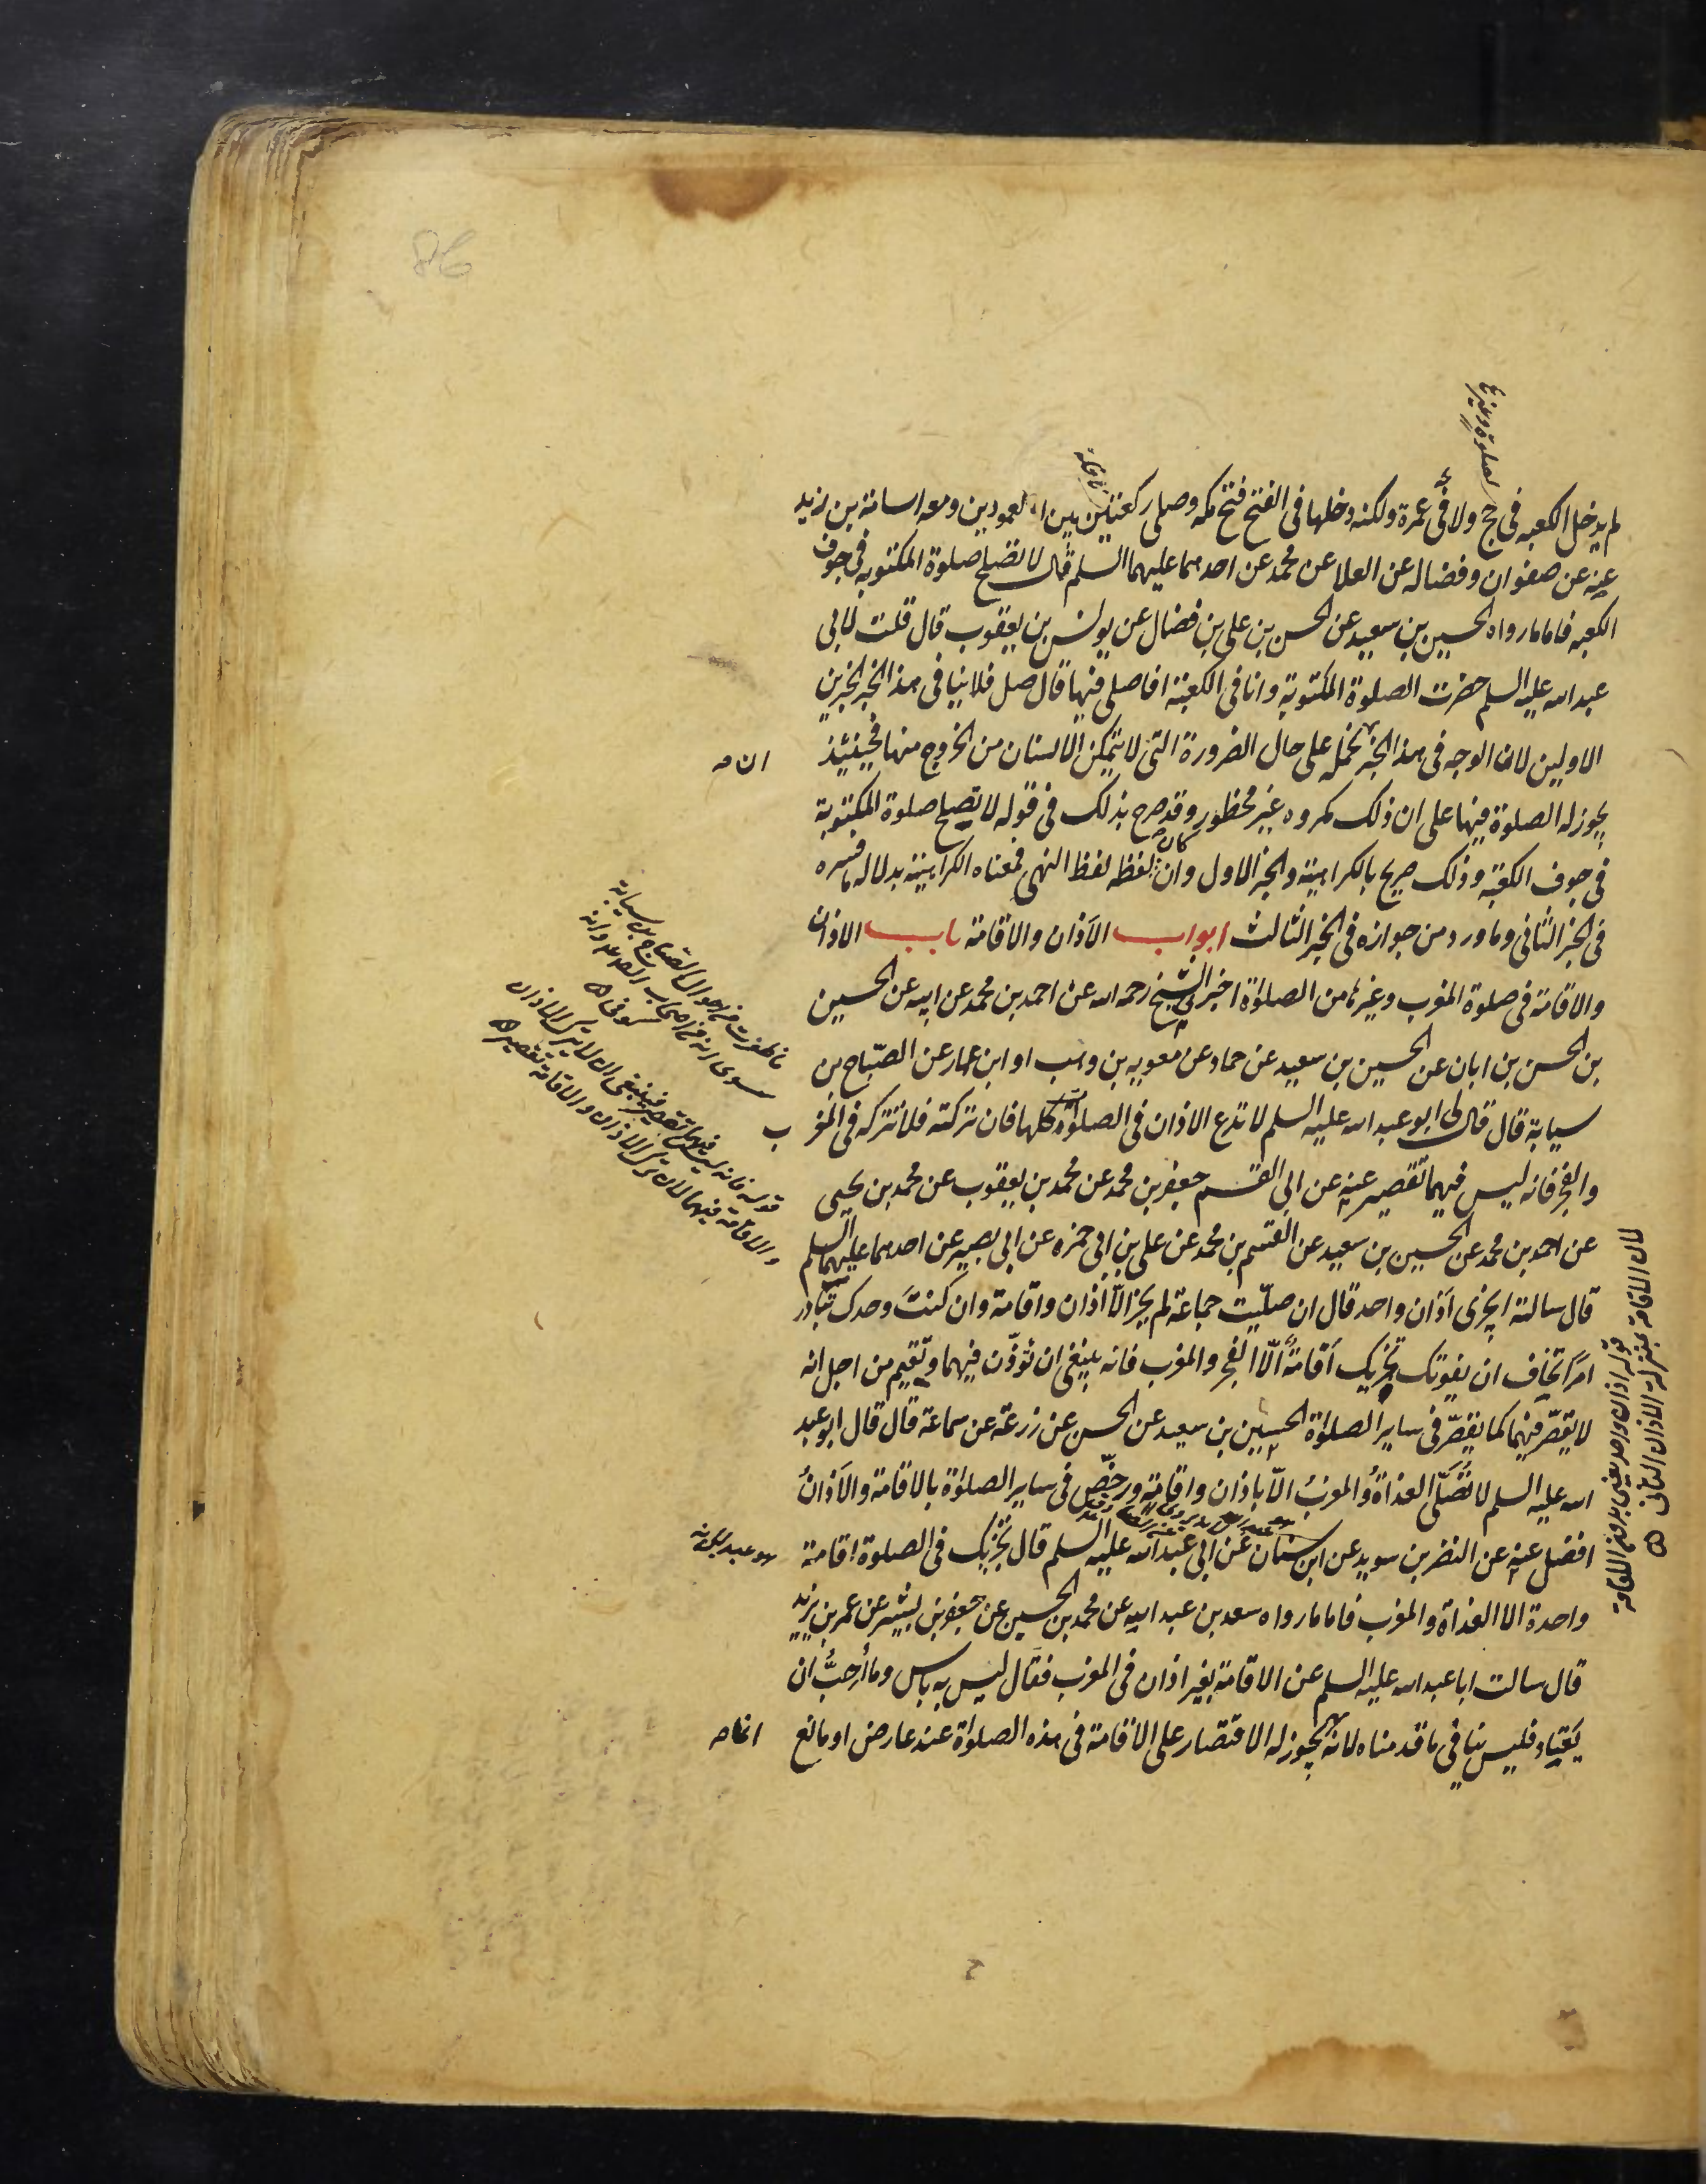 لم يدخل الكعبه فى حج ولا فى عمرة ولكنه دخلها فى الفتح فتح مكه وصلى ركعتين بين العمودين ومعه اسامة بن زيد
عنه عن صفوان وفضاله عن العلا عن محمد عن احدهما عليهما السلم قال لا تصلح صلوة المكتوبه فى جوف
الكعبه فاما ما رواه الحسين بن سعيد عن الحسن بن على بن فضال عن يونس بن يعقوب قال قلت لابى
عبد الله عليه السلم حضرت الصلوة المكتوبة وانا فى الكعبة افاصلى فيها قال صل فلا ينافى هذا الخبر الخبرين
الاولين لان الوجه فى هذا الخبر نحمله على حال الضرورة التى لا يتمكن الانسان من الخروج منها فحينئذ
يجوز له الصلوة فيها على ان ذلك مكروه غير محظور وقد صرح بذلك فى قوله لا تصلح صلوة المكتوبة
فى جوف الكعبة وذلك صريح بالكراهية والخبر الاول وان كان لفظه لفظ النهى فمعناه الكراهية بدلالة ما فسره
فى الخبر الثانى وما ورد من جوازه فى الخبر الثالث ابواب الآذان والاقامة باب الاذان
والاقامة فى صلوة المغرب وغيرها من الصلوات اخبرنى الشيخ رحمه الله عن احمد بن محمد عن ابيه عن الحسين
بن الحسن بن ابان عن الحسين بن سعيد عن حماد عن معويه بن وهب او ابن عمار عن الصبّاح بن
سيابة قال قال لى ابو عبد الله عليه السلم لا تدع الاذان فى الصلوات كلها فان تركته فلا تتركه فى المغرب
والفجر فانه ليس فيهما تقصير عنه عن ابى القسم جعفر بن محمد عن محمد بن يعقوب عن محمد بن يحيى
عن احمد بن محمد عن الحسين بن سعيد عن القسم بن محمد عن على بن ابى حمزه عن ابى بصير عن احدهما عليهما السلم
قال سالته ايجزى اذان واحد قال ان صليت جماعة لم يجز الّا اذان واقامة وان كنت وحدك تبادر
امرًا تخاف ان يفوتك تجزيك اقامة الّا الفجر والمغرب فانه ينبغى ان تؤذّن فيهما وتقيم من اجل انه
لا يقصّر فيهما كما يقصّر فى ساير الصلوات الحسين بن سعيد عن الحسن عن زرعة عن سماعة قال قال ابو عبد
الله عليه السلم لا تُصَلّى الغداةُ والمغربُ الّا باذان واقامة ورخّص فى ساير الصلوات بالاقامة والآذانُ
افضل عنه عن النضر بن سويد عن ابن سنان عن ابى عبد الله عليه السلم قال تجزيك فى الصلوة اقامة
واحدة الا الغداة والمغرب فاما ما رواه سعد بن عبد الله عن محمد بن الحسين عن جعفر بن بشير عن عمر بن يزيد
قال سالت ابا عبد الله عليه السلم عن الاقامة بغير اذان فى المغرب فقال ليس به باس وما أُحِبُّ ان
يَعتاد فليس ينافى ما قدمناه لانه يجوز له الاقتصار على الاقامة فى هذه الصلوات عند عارض او مانع
لصلوة وغيرها
نافلة
ما ظفرت من احوال الصباح بن سيابة
سوى انه من اصحاب الصادق وانه
كوفى
قوله فانه ليس فيهما تقصير فينبغى ان لا يترك الاذان
والاقامة فيهما لان ترك الاذان والاقامة تقصير
هو عبد الله
قوله اذان واحد يعنى بدون الاقامة
لان الاقامة بمنزلة الاذان الثانى
86